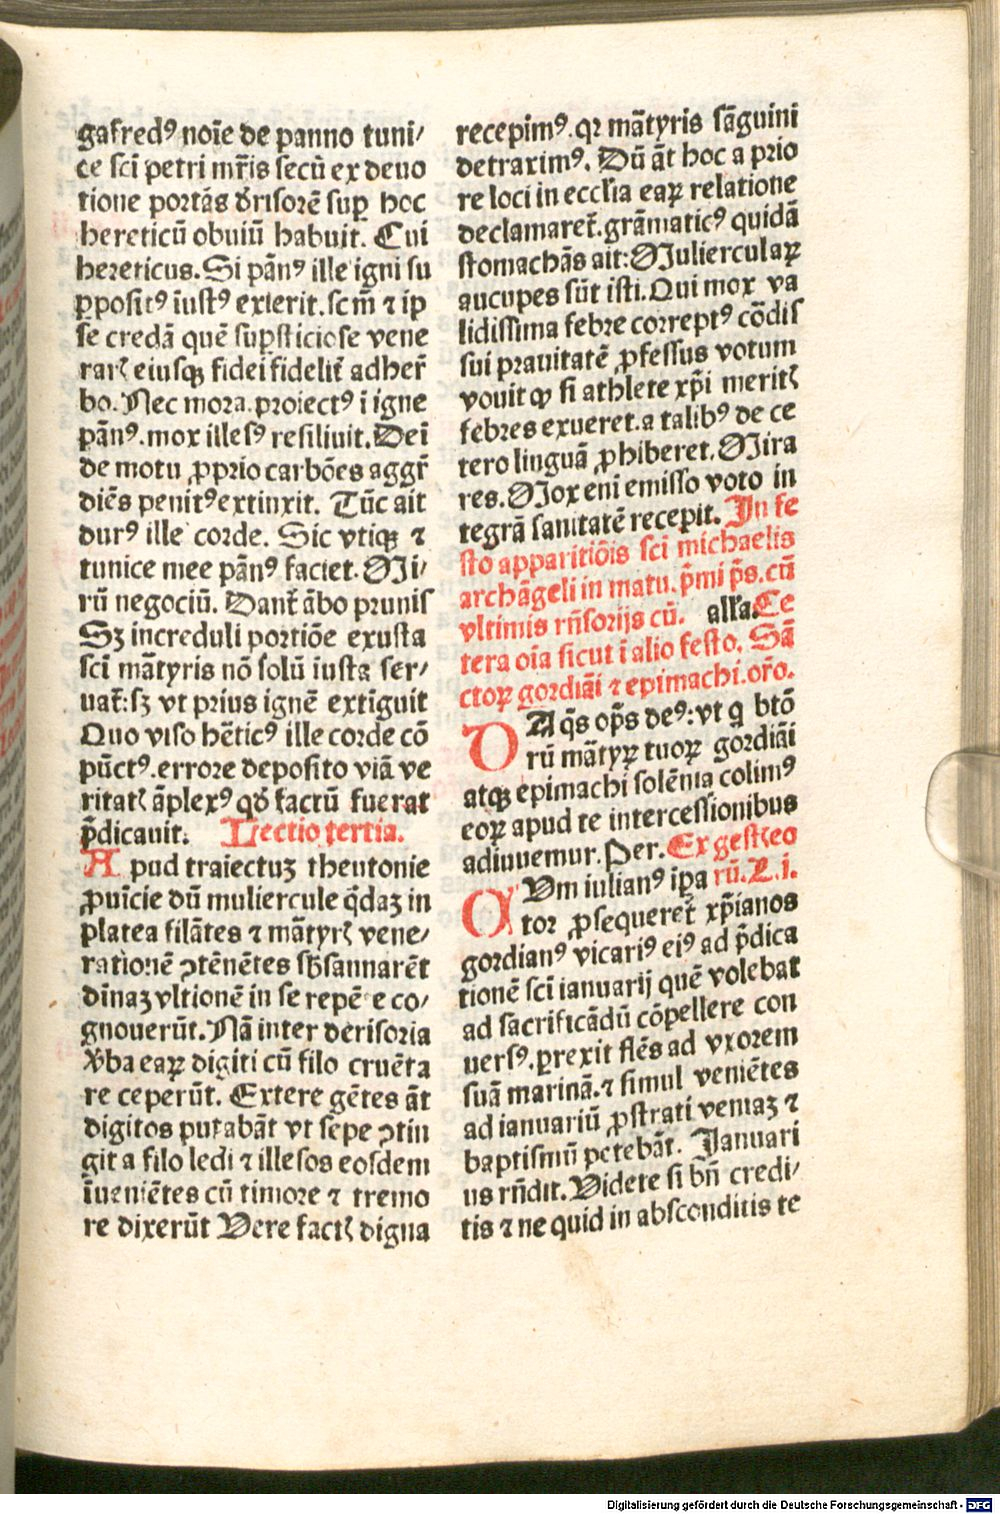 gafredꝰ noīe de panno tuni⸗
ce scī petri mr̄is secū ex deuo
tione portās d'risorē suꝑ hoc
hereticū obuiū habuit. Cui
hereticus. Si pānꝰ ille igni su
ꝑpositꝰ iustꝰ exierit. scm̄ ⁊ ip
se credā quē suꝑsticiose vene
rarꝭ eiusqꝫ fidei fidelit̄ adher̄
bo. Nec mora. proiectꝰ ī igne
pānꝰ. mox illesꝰ resiliuit. Deī
de motu ꝓprio carbōes aggr̄
diēs penitꝰ extinxit. Tūc ait
durꝰ ille corde. Sic vtiqꝫ ⁊
tunice mee pānꝰ faciet. Mi⸗
rū negociū. Dant̄ ābo prunis
Sꝫ increduli portiōe exusta
scī mātyris nō solū iusta ser⸗
uat̄: sꝫ vt prius ignē extīguit
Quo viso hēticꝰ ille corde cō
pūctꝰ. errore deposito viā ve
ritatꝭ āplexꝰ qd' factū fuerat
p̄dicauit. Lectio tertia.
Apud traiectuꝫ theutonie
ꝓuīcie dū muliercule q̄daꝫ in
platea filātes ⁊ mātyrꝭ vene⸗
rationē ꝯtēnētes sb̄sannarēt
dīnaꝫ vltionē in se repēte co⸗
gnouerūt. Nā inter derisoria
v'ba eaꝝ digiti cū filo cruēta
re ceperūt. Extergētes āt
digitos putabāt vt sepe ꝯtin
git a filo ledi ⁊ illesos eosdem
īueniētes cū timore ⁊ tremo
re dixerūt Vere factꝭ digna
recepimꝰ. qꝛ mātyris sāguini
detraximꝰ. Dū āt hoc a prio
re loci in ecclīa eaꝝ relatione
declamaret̄. grāmaticꝰ quidā
stomachās ait: Mulierculaꝝ
aucupes sūt isti. Qui mox va
lidissima febre correptꝰ cōdis
sui prauitatē ꝓfessus votum
vouit ꝙ si athlete xp̄i meritꝭ
febres exueret. a talibꝰ de ce
tero linguā ꝓhiberet. Mira
res. Mox eni emisso voto in
tegrā sanitatē recepit. In fe
sto apparitiōis scī michaelis
archāgeli in matu. p̄mi p̄s. cū
vltimis rn̄sorijs cū. alľa. Ce
tera oīa sicut ī alio festo. Sā
ctoꝝ gordiāi ⁊ epimachi. or̄o.
DA q̄s op̄s deꝰ: vt q btō
rū mātyꝝ tuoꝝ gordiāi
atqꝫ epimachi solēnia colimꝰ
eoꝝ apud te intercessionibus
adiuuemur. Per. Ex gestꝭ eo
QVm iulianꝰ ip̄a rū. L. i.
tor ꝓsequeret̄ xp̄ianos
gordianꝰ vicariꝰ eiꝰ ad p̄dica
tionē scī ianuarij quē volebat
ad sacrificādū cōpellere con
uersꝰ. ꝑrexit flēs ad vxorem
suā marinā. ⁊ simul veniētes
ad ianuariū ꝓstrati veniaꝫ ⁊
baptismū petebāt. Ianuari
us rn̄dit. Videte si bn̄ credi⸗
tis ⁊ ne quid in absconditis te
Digitalisierung gefördert durch die Deutsche Forschungsgemeinschaft - DFG